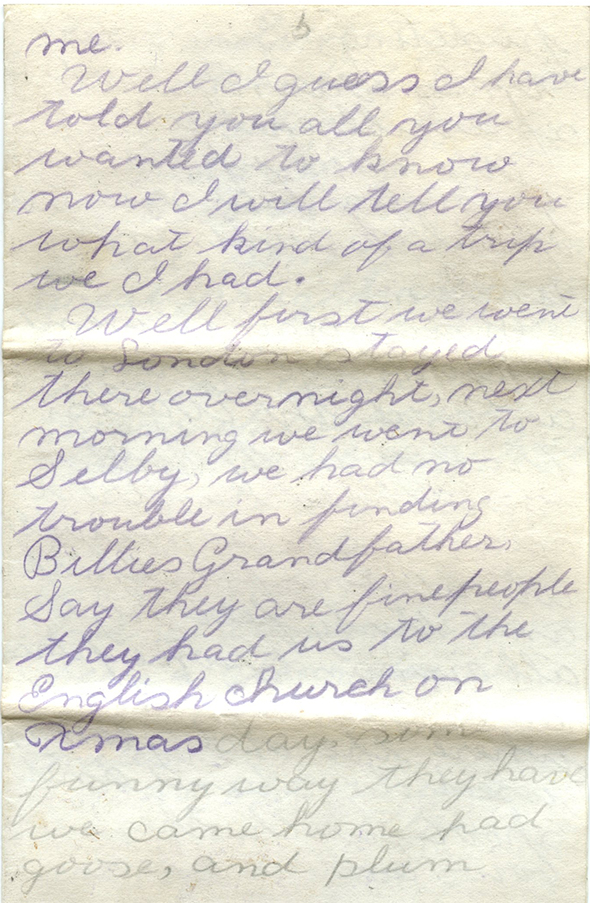 me.
Well I guess I have
told you all you
wanted to know
now I will tell you
what kind of a trip
we I had.
Well first we went
to London stayed
there overnight, next
morning we went to
Selby, we had no
trouble in finding
Billies Grandfather.
Say they are fine people
they had us to the
English church on
Xmas day. some
funny way they have
we came home had
goose, and plum